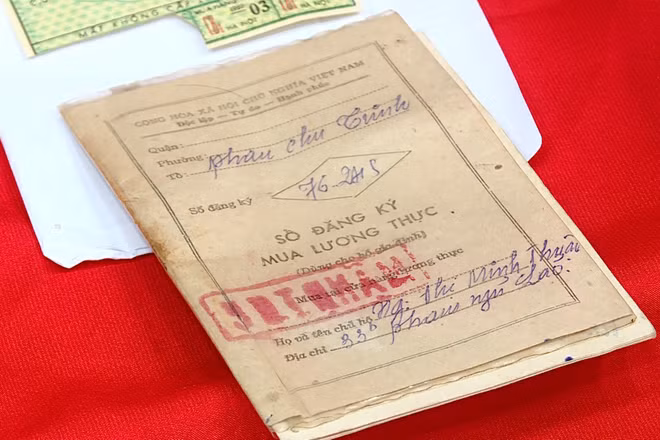 MẤT KHÔNG CẤP
03
HÀ NỘI
CỘNG HÒA XÃ HỘI CHỦ NGHĨA VIỆT NAM
Độc lập — Tự do — Hạnh phúc
Quận:
Phường: Phan Chu Trinh
Tổ:
Số đăng ký
SỔ ĐĂNG KÝ
MUA LƯƠNG THỰC
(Dùng cho hộ gia đình)
Mua tại cửa hàng lương thực
Họ và tên chủ hộ Ng. Thị Minh Thuận
Địa chỉ 33b Phạm ngũ Lão